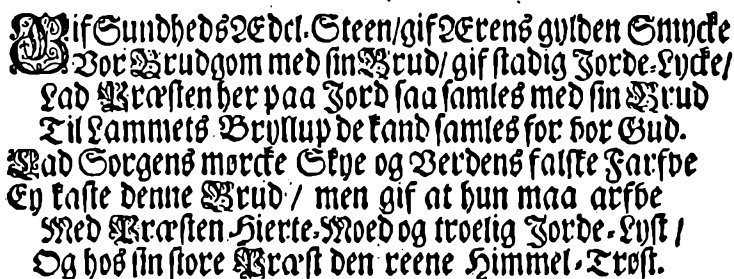 Gif Sundheds Ædel-Steen/ gif Ærens gylden Smycke
Vor Brudgom med sin Brud/ gif stadig Jorde-Lycke/
Lad Præsten her paa Jord saa samles med sin Brud
Til Lammets Bryllup de kand samles for vor Gud.
Lad Sorgens mørcke Skye og Verdens falske Farfve
Ey kaste denne Brud/ men gif at hun maa arfve
Med Præsten Hierte-Moed og troelig Jorde-Lyst/
Og hos sin store Præst den reene Himmel-Trøst.